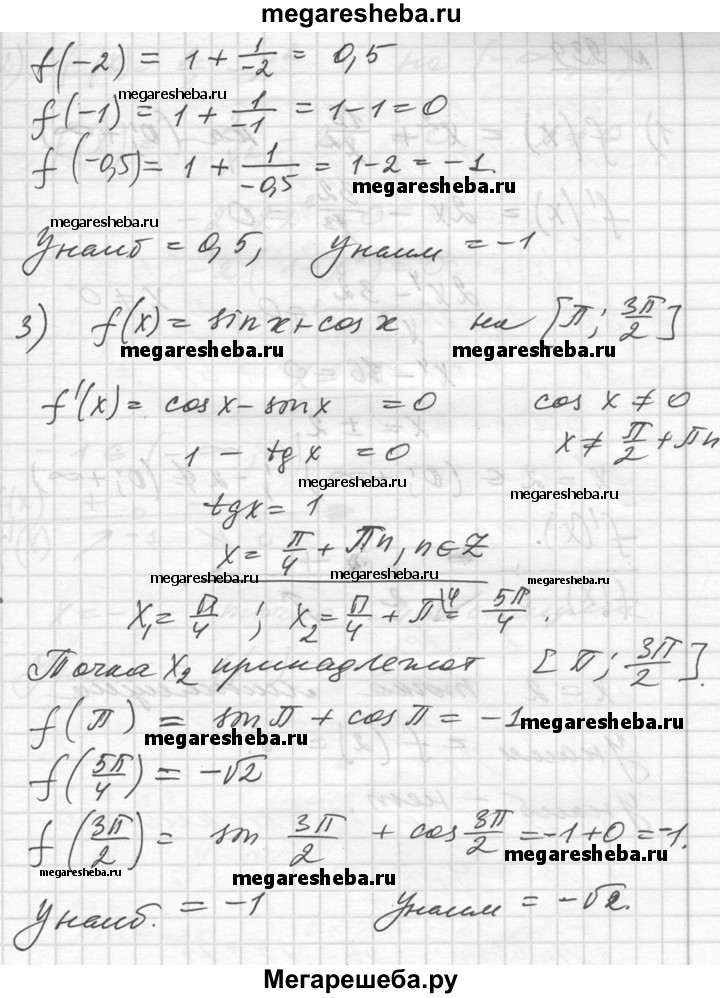 megaresheba.ru
f(-2) = 1 + 1/-2 = 0,5
megaresheba.ru
f(-1) = 1 + 1/-1 = 1-1 = 0
f(-0,5) = 1 + 1/-0,5 = 1-2 = -1.
megaresheba.ru
megaresheba.ru
Yнаиб = 0,5, Yнаим = -1
3) f(x) = sin x + cos x на [π; 3π/2]
megaresheba.ru megaresheba.ru
f'(x) = cos x - sin x = 0 cos x ≠ 0
1 - tg x = 0 x ≠ π/2 + πn
megaresheba.ru megaresheba.ru
tg x = 1
x = π/4 + πn, n ∈ Z
megaresheba.ru megaresheba.ru
x₁ = π/4 ; x₂ = π/4 + π\4 = 5π/4 .
Точка x₂ принадлежит [π; 3π/2].
f(π) = sin π + cos π = -1
megaresheba.ru megaresheba.ru
f(5π/4) = -√2
f(3π/2) = sin 3π/2 + cos 3π/2 = -1+0 = -1.
megaresheba.ru megaresheba.ru megaresheba.ru
Yнаиб. = -1 Yнаим = -√2.
Мегарешеба.ру